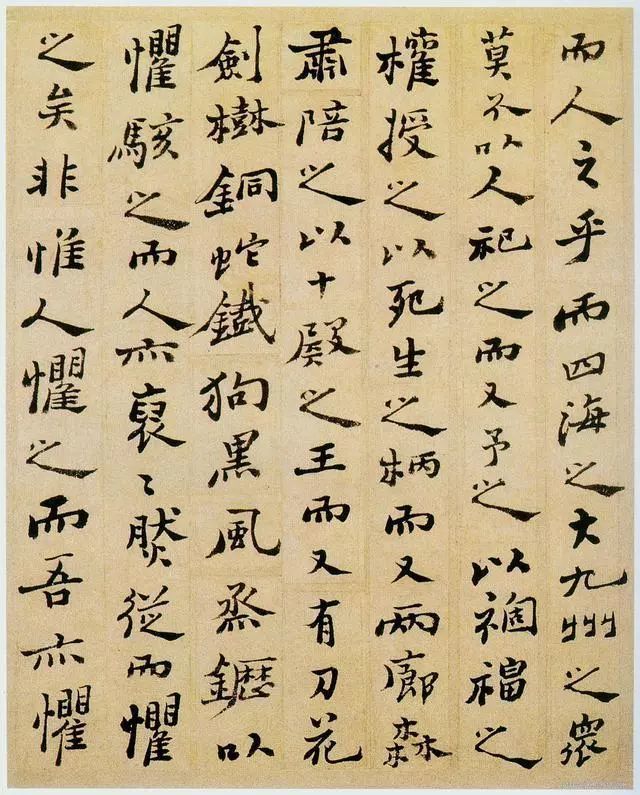 而人之乎而四海之大九州之衆
莫不以人祀之而又予之以禍福之
權授之以死生之柄而又兩廊森
肅陪之以十殿之王而又有刀花
劍樹銅蛇鐵狗黑風烝䥶以
懼駭之而人亦裒〻然從而懼
之矣非惟人懼之而吾亦懼